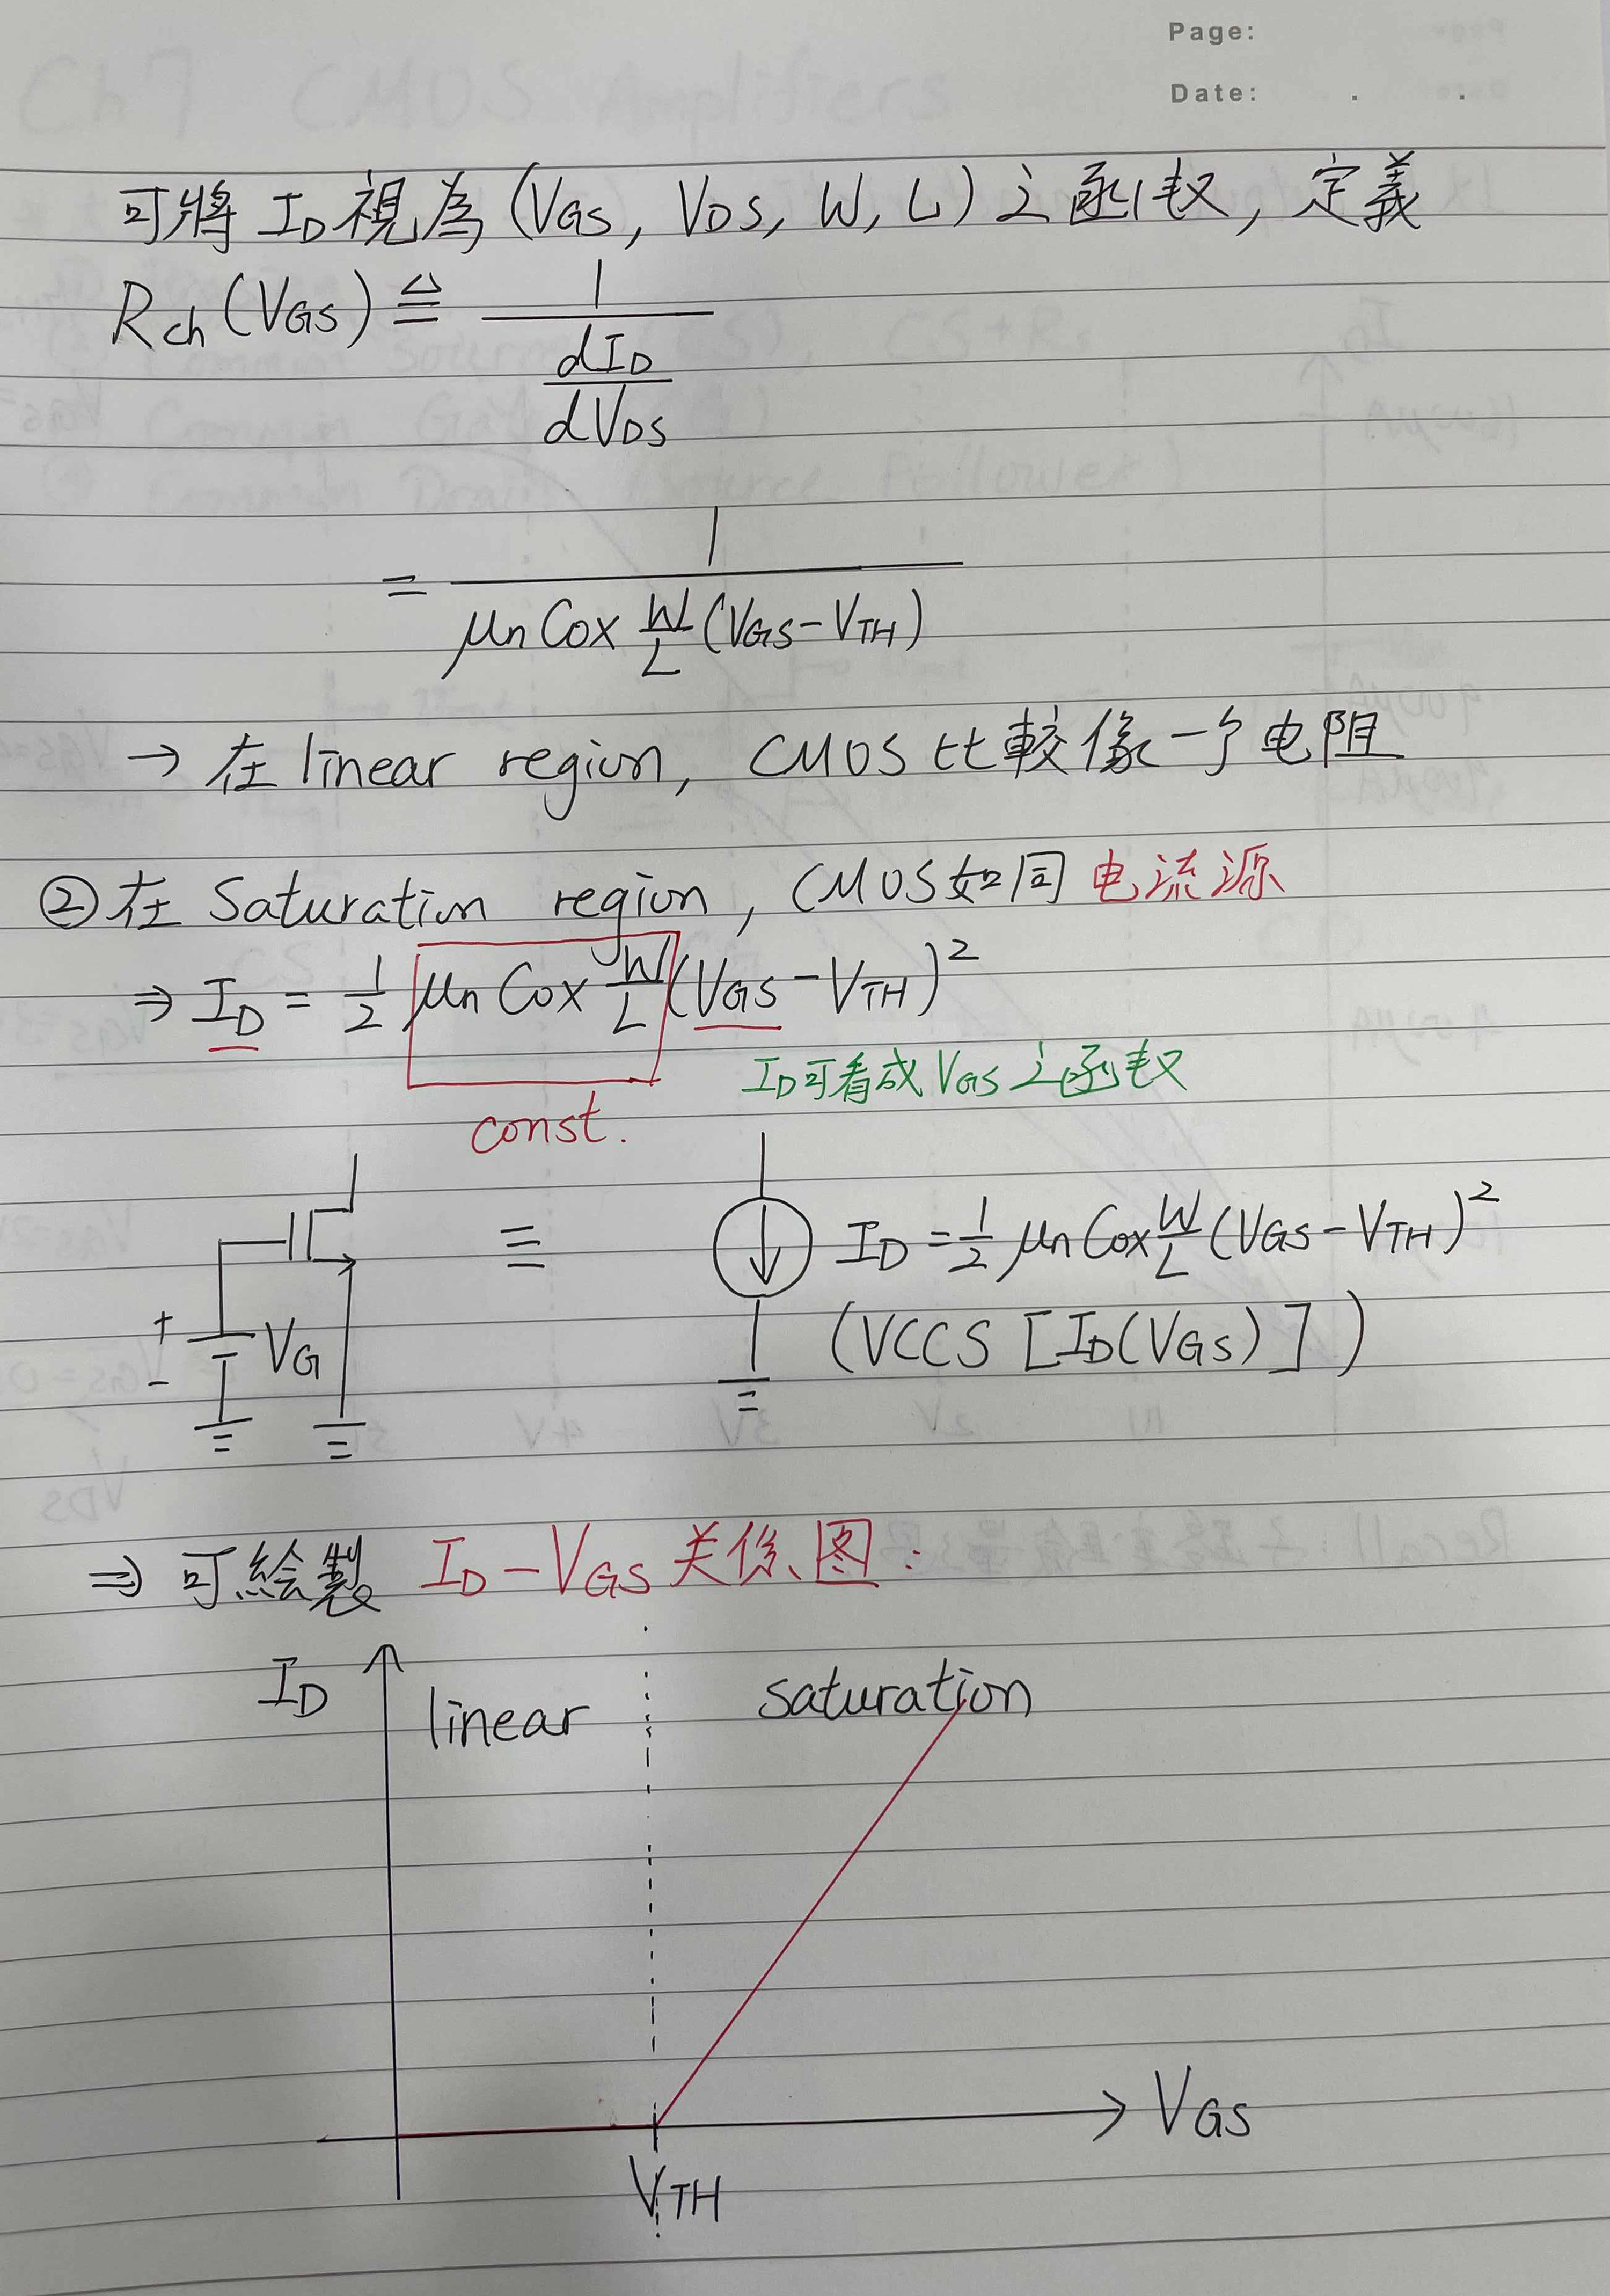 Page:
Date: . .
可將 ID 視為 (VGS, VDS, W, L) 之函数, 定義
Rch(VGS) ≜ 1 / (dID / dVDS)
= 1 / (μn Cox W/L (VGS-VTH))
→ 在 linear region, CMOS 比較像一个电阻
② 在 Saturation region, CMOS如同 电流源
⇒ ID = 1/2 μn Cox W/L (VGS-VTH)²
ID可看成 VGS 之函数
const.
+
-
VG
≡
ID = 1/2 μn Cox W/L (VGS-VTH)²
(VCCS [ID(VGS)])
⇒ 可絵製 ID-VGS 关係图:
ID
linear
saturation
VGS
VTH